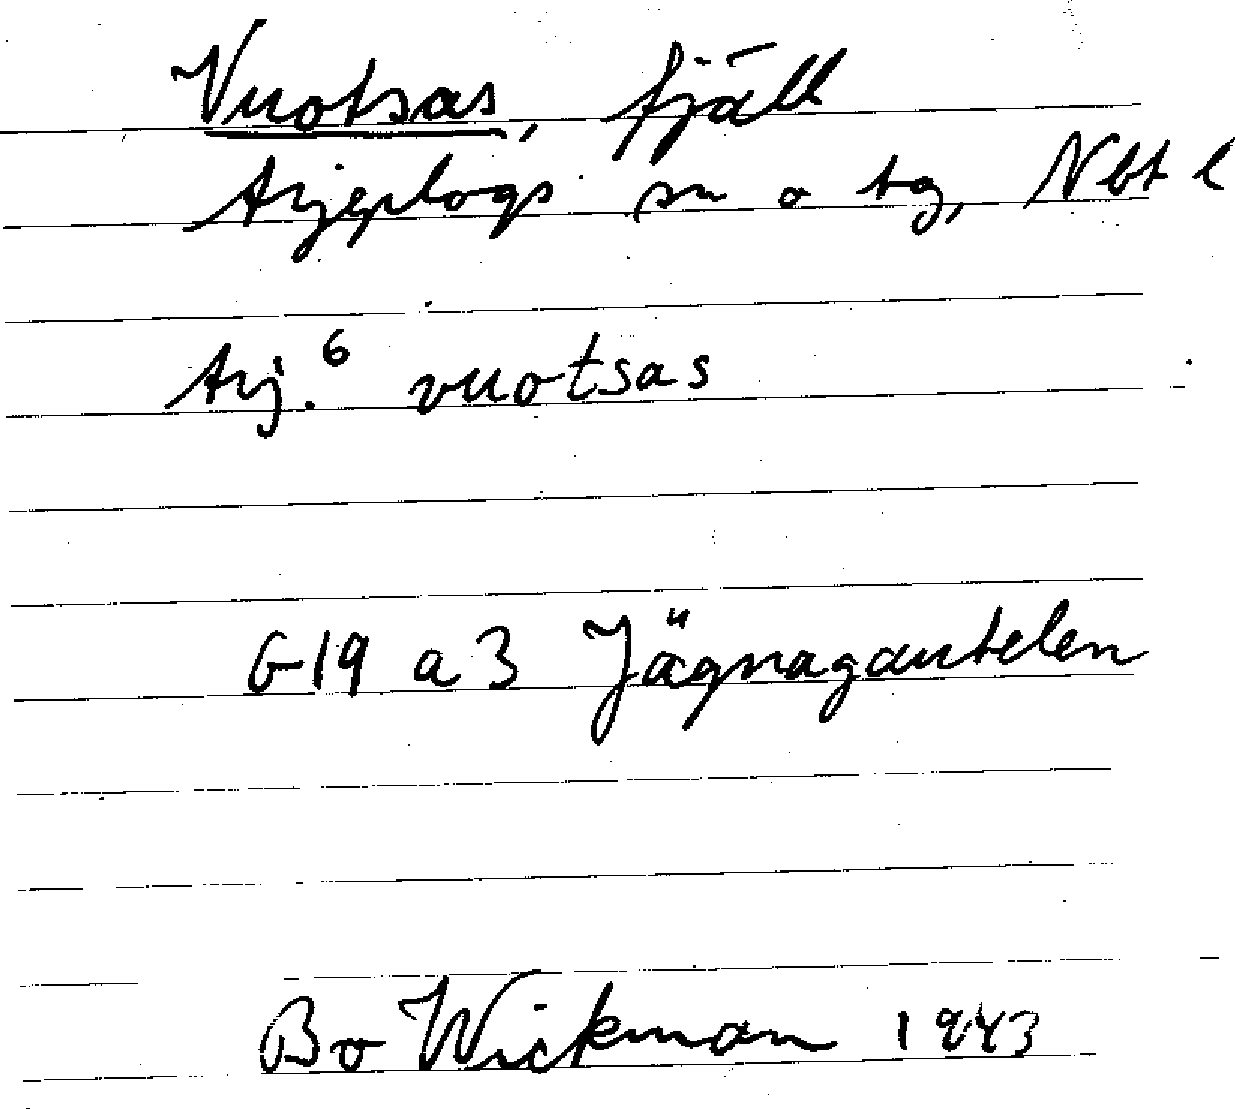 Vuotsas, fjäll
Arjeplogs sn o tg, Nbt l
Arj.⁶ vuotsas
G19 a 3 Jägnagautelen
Bo Wickman 1943